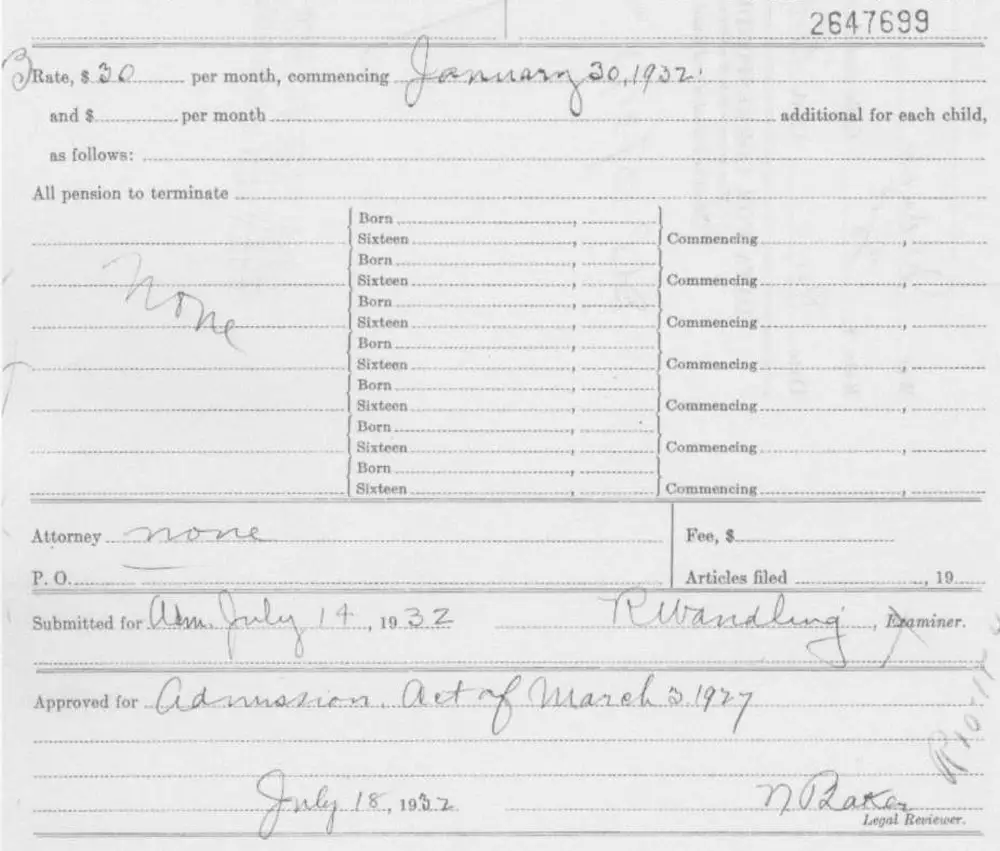 2647699
Rate, $ 30 per month, commencing January 30, 1932.
and $ per month additional for each child,
as follows:
All pension to terminate
Born ,
Sixteen , Commencing ,
Born ,
Sixteen , Commencing ,
None
Born ,
Sixteen , Commencing ,
Born ,
Sixteen , Commencing ,
Born ,
Sixteen , Commencing ,
Born ,
Sixteen , Commencing ,
Born ,
Sixteen , Commencing ,
Attorney none Fee, $
P. O. Articles filed , 19
Submitted for Adm. July 14, 1932 R Wandling, Examiner.
Approved for Admission. Act of March 3. 1927
July 18, 1932 N Baker
Legal Reviewer.